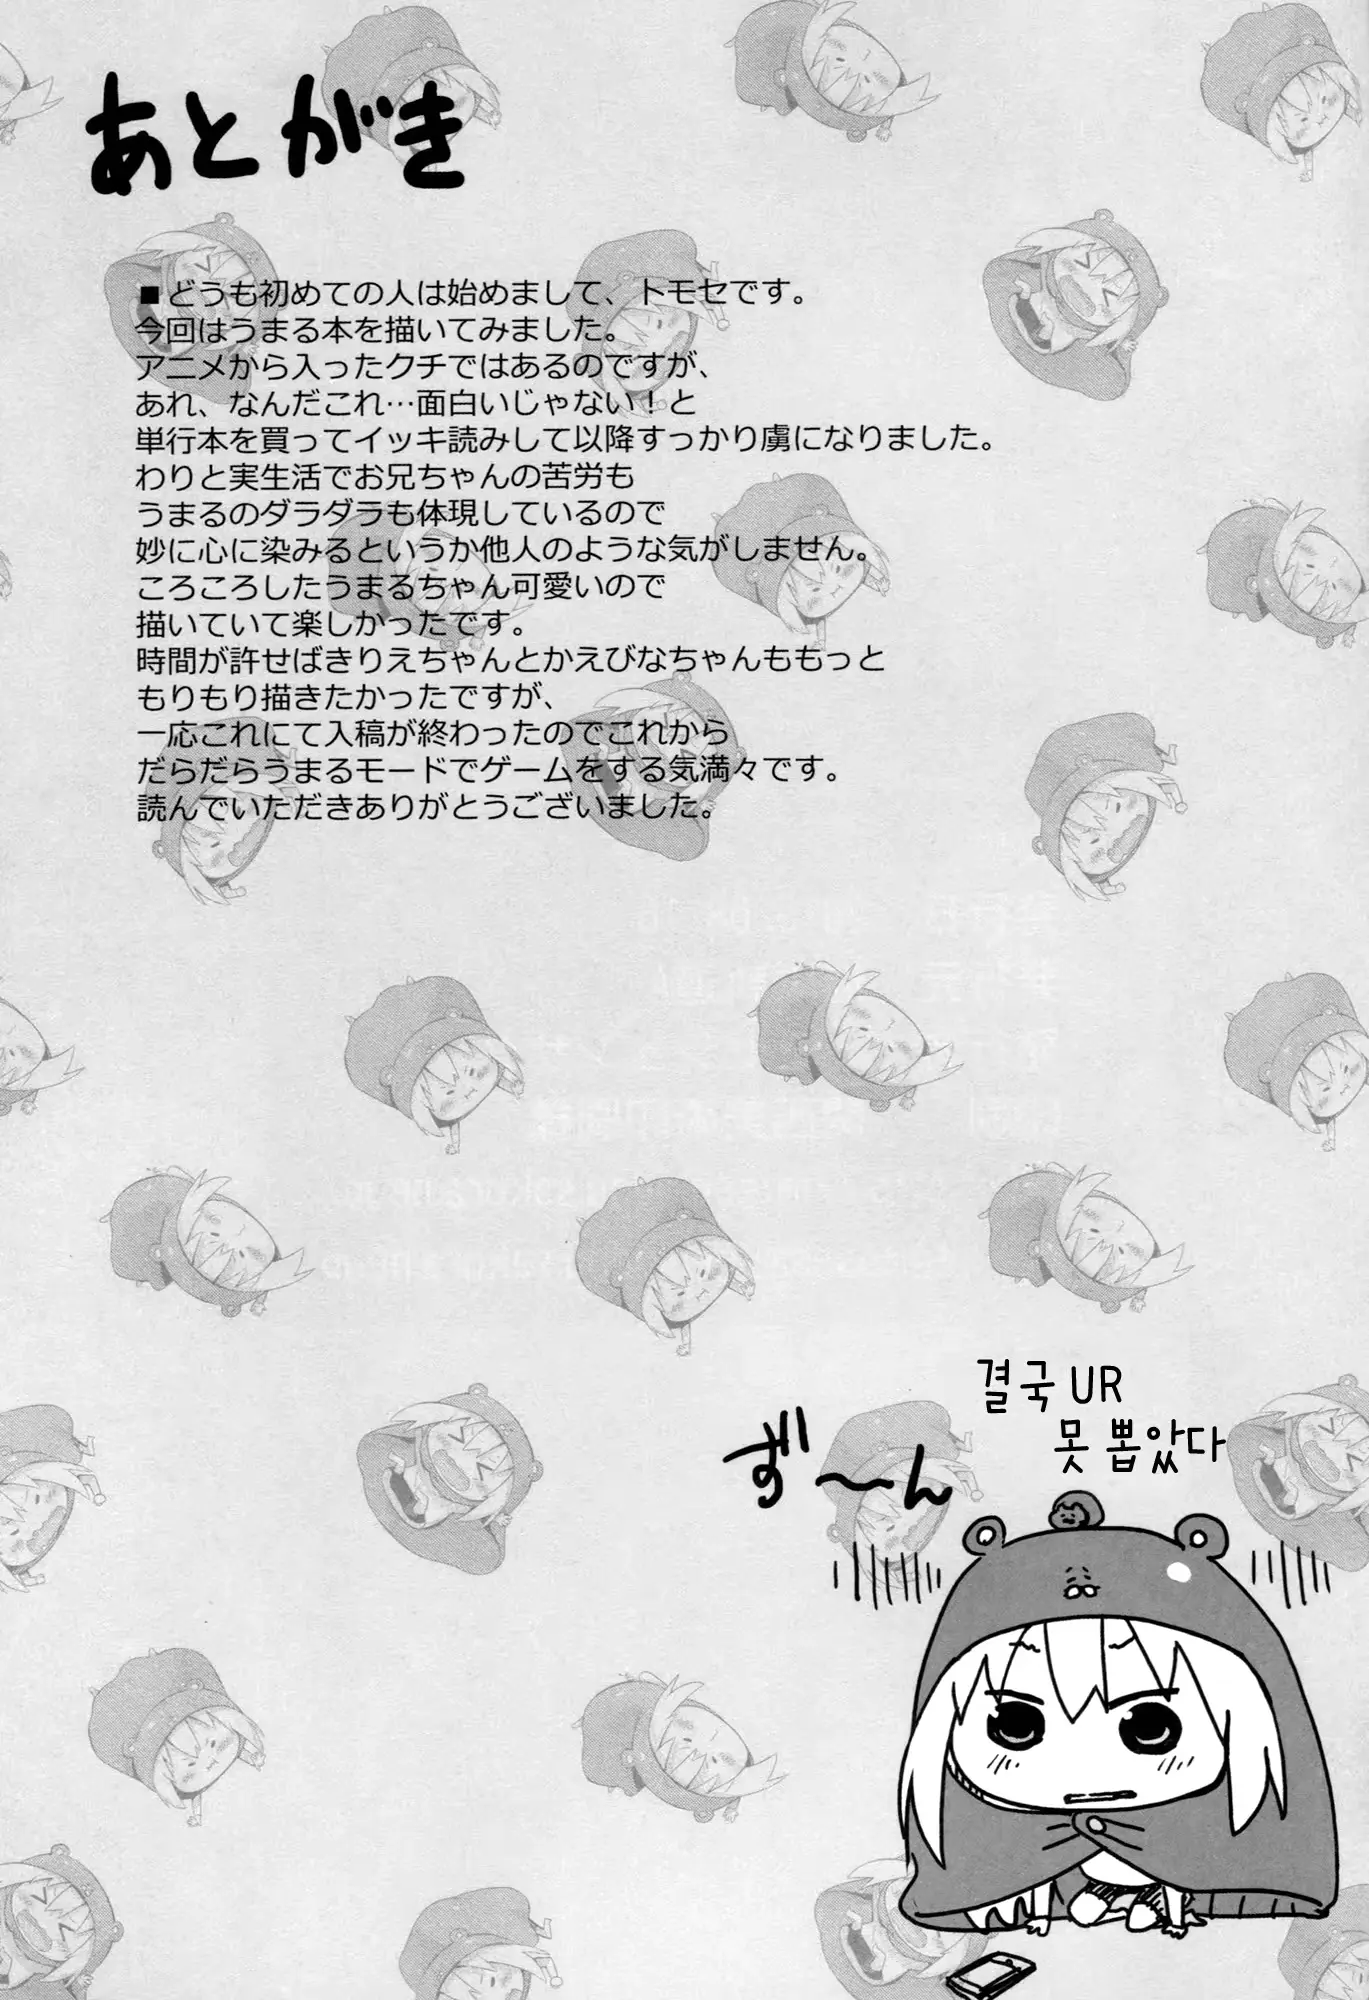 あとがき
■どうも初めての人は始めまして、トモセです。
今回はうまる本を描いてみました。
アニメから入ったクチではあるのですが、
あれ、なんだこれ…面白いじゃない！と
単行本を買ってイッキ読みして以降すっかり虜になりました。
わりと実生活でお兄ちゃんの苦労も
うまるのダラダラも体現しているので
妙に心に染みるというか他人のような気がしません。
ころころしたうまるちゃん可愛いので
描いていて楽しかったです。
時間が許せばきりえちゃんとかえびなちゃんももっと
もりもり描きたかったですが、
一応これにて入稿が終わったのでこれから
だらだらうまるモードでゲームをする気満々です。
読んでいただきありがとうございました。
결국 UR
못 뽑았다
ず〜ん